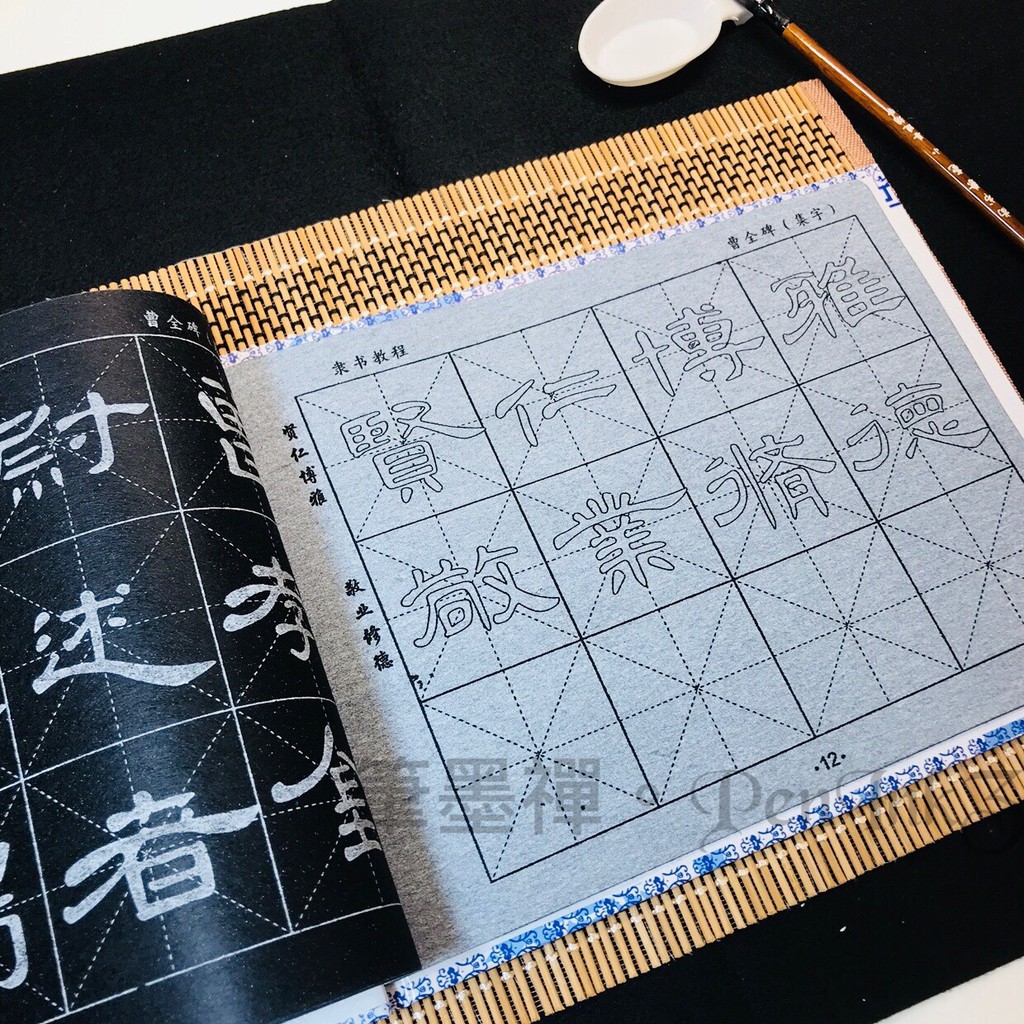 曹全碑
尉
述
者
孝
全
隶书教程
曹全碑(集字)
贤仁博雅
敬业修德
賢仁博雅
敬業脩德
·12·
筆墨禪·Pen